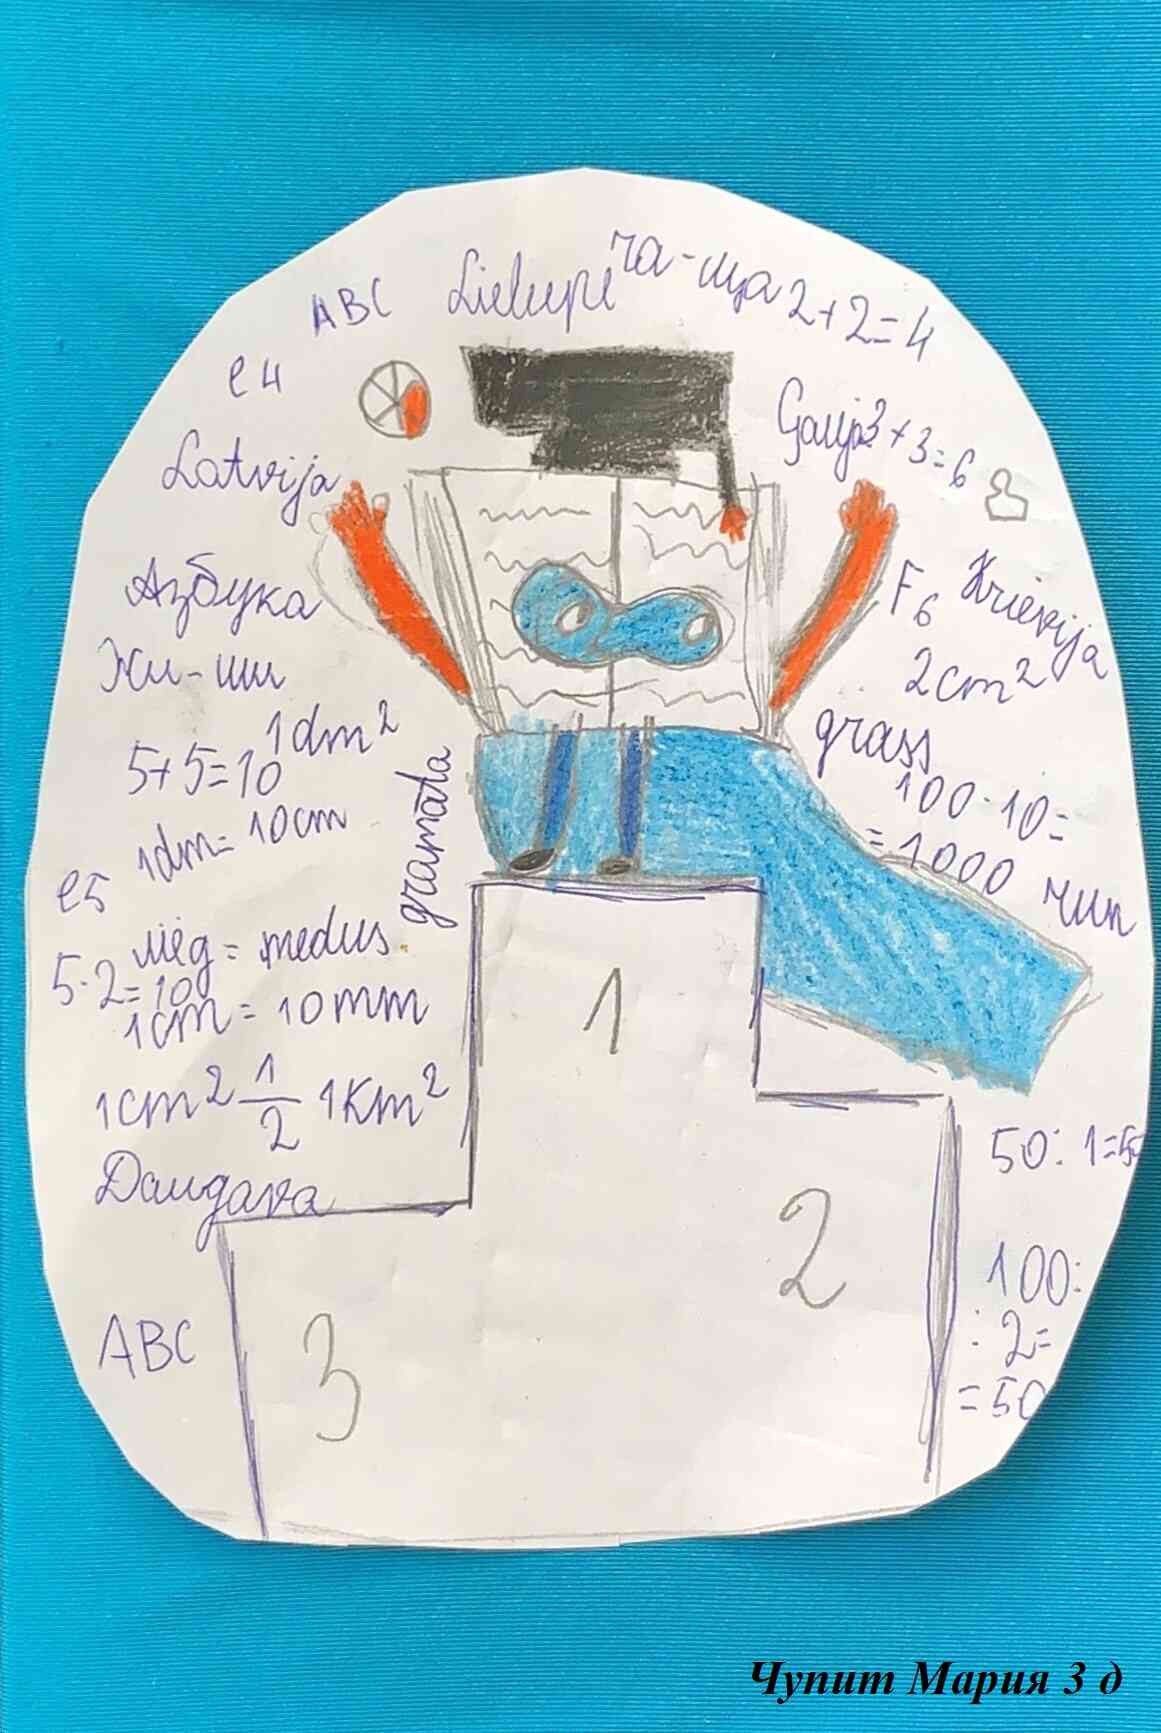 ABC
Lielupe
ча-ща
2+2=4
e4
Gauja
3+3=6
Latvija
Азбука
F6
Krievija
Жи-ши
2cm²
1dm²
grass
5+5=10
100·10=
=1000
1dm=10cm
grāmata
чип
e5
mēg = medus
5·2=10
1cm = 10mm
1cm²
1/2
1km²
1
Daugava
50:1=50
2
100:
:2=
=50
ABC
3
Чупит Мария 3 д